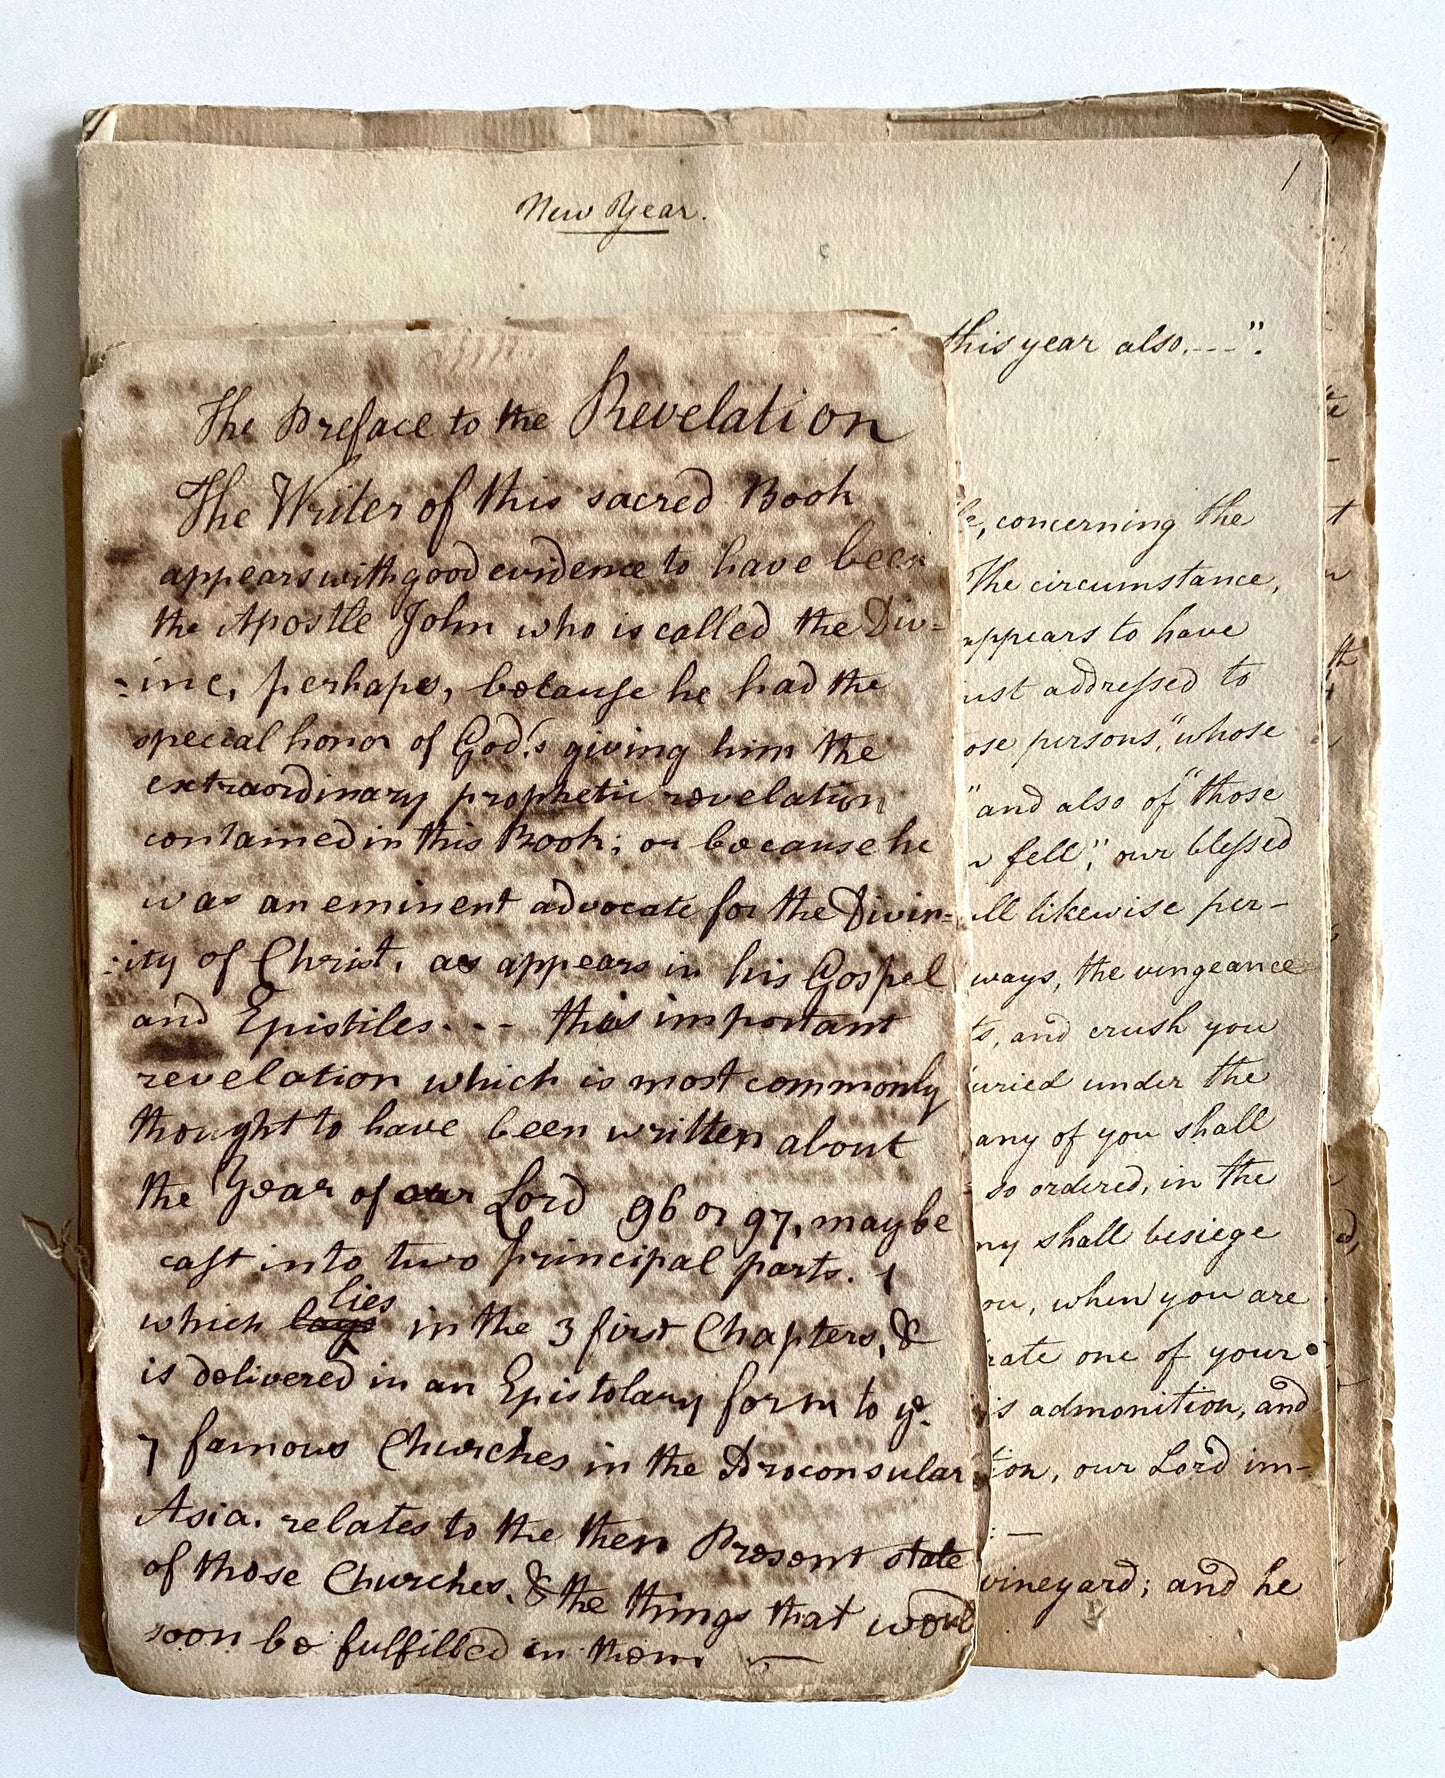 New Year.
1
this year also.---".
concerning the
The circumstance,
appears to have
addreſsed to
persons," whose
"and also of "those
fell"; our bleſsed
likewise per-
ways, the vengeance
and crush you
under the
any of you shall
so ordered, in the
shall besiege
when you are
one of your
admonition, and
our Lord im-
vineyard; and he
The Preface to the Revelation
The Writer of this sacred Book
appears with good evidence to have been
the Apostle John who is called the Div=
=ine, perhaps, becauſe he had the
special honor of God's giving him the
extraordinary prophetic revelation
contained in this Book; or because he
was an eminent advocate for the Divin=
=ity of Christ, as appears in his Gospel
and Epistiles. - - this important
revelation which is most commonly
thought to have been written about
the Year of our Lord 96 or 97, may be
caſt into two principal parts. 1
which lays lies in the 3 first Chapters, &
is delivered in an Epistolary form to ye.
7 famous Churches in the Proconsular
Asia. relates to the then Present state
of those Churches, & the things that would
soon be fulfilled in them —